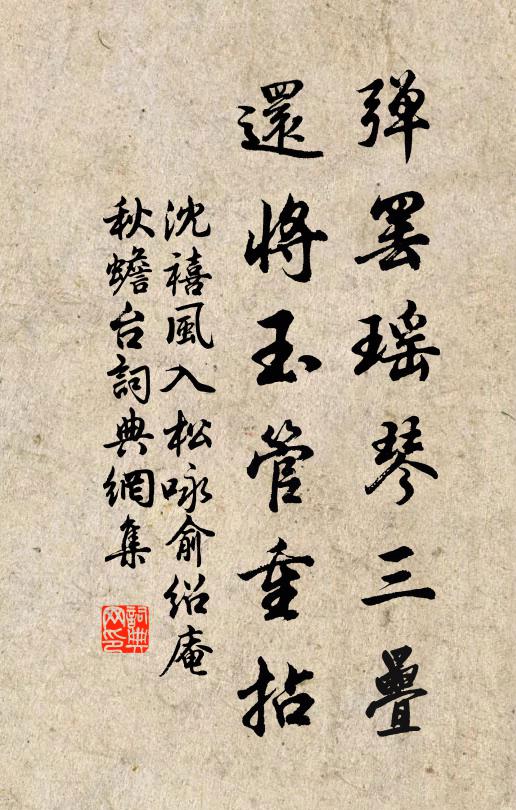 彈罢瑶琴三疊
還將玉管重拈
沈禧風入松咏俞绍庵
秋蟾台詞典網集
詞典网印